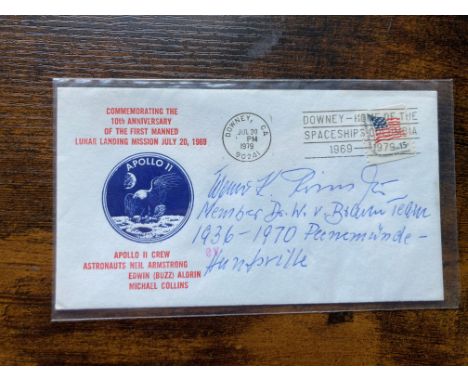 COMMEMORATING THE
10th ANNIVERSARY
OF THE FIRST MANNED
LUNAR LANDING MISSION JULY 20, 1969
APOLLO 11
APOLLO 11 CREW
ASTRONAUTS NEIL ARMSTRONG
EDWIN (BUZZ) ALDRIN
MICHAEL COLLINS
DOWNEY, CA
JUL 20
PM
1979
90241
DOWNEY-HOME OF THE
SPACESHIPS COLUMBIA
1969 1979
15c
Member Dr. W. v. Braun Team
1936-1970 Peenemünde-
Huntsville